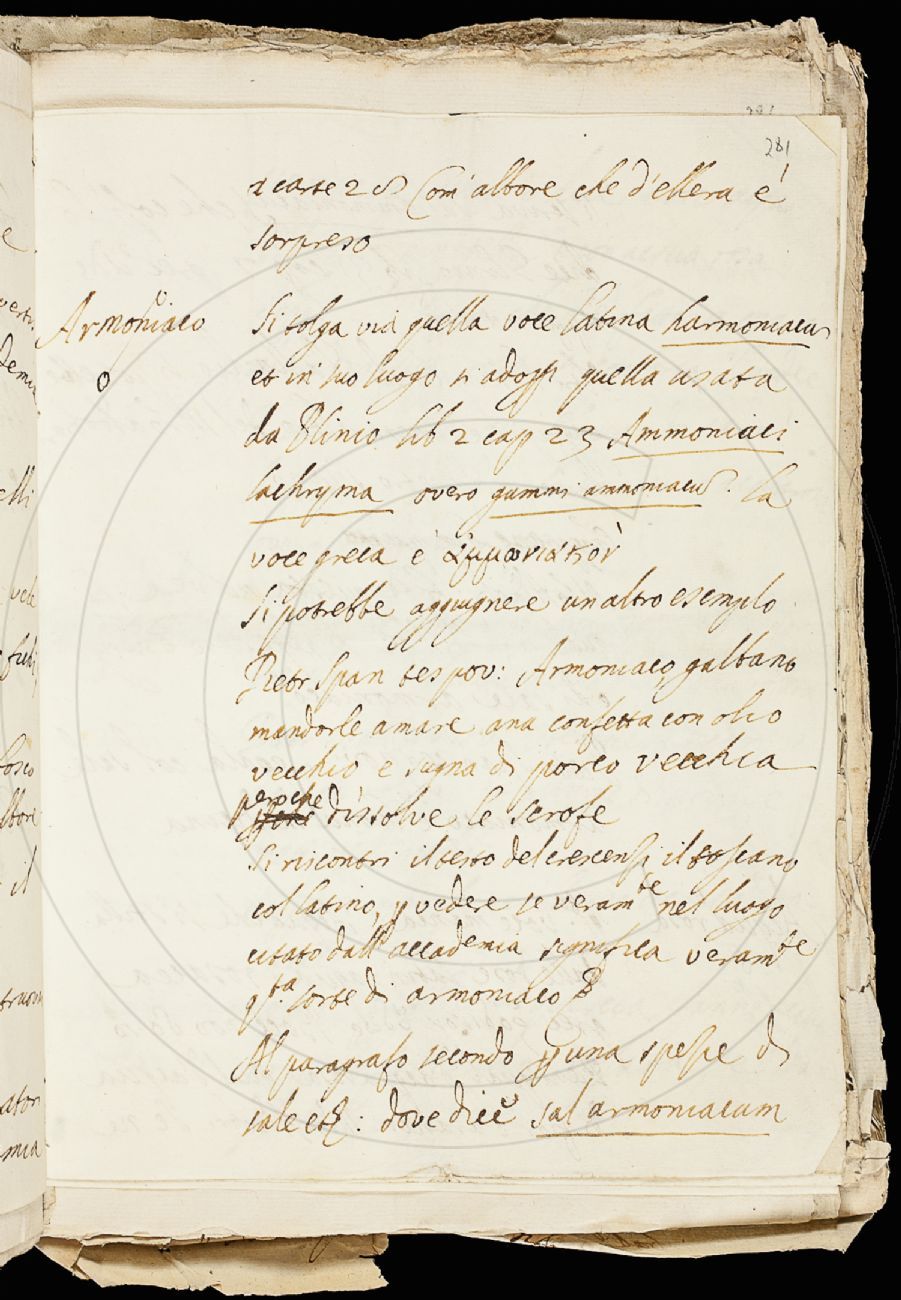 281
a carte 28 Com' albore che d'ellera é
sorpreso
Armoniaco
Si tolga via quella voce latina harmoniacus
et in suo luogo si adoppi quella usata
da Plinio lib 2 cap 23 Ammoniaci
lachryma overo gummi ammoniacũ. la
voce greca é ἀμμωνιακὸν
Si potrebbe aggiugnere un altro esemplo
Pietr Span tes pov: Armoniaco galbano
mandorle amare ana confetta con olio
vecchio e sugna di porco vecchia
peroche dissolve le scrofe
Si riscontri il testo del crescenzi il toscano
col latino, p vedere se veramte nel luogo
citato dall' accademia significa veramte
qta sorte di armoniaco
Al paragrafo secondo p una spezie di
sale etc: dove dice sal armoniacum